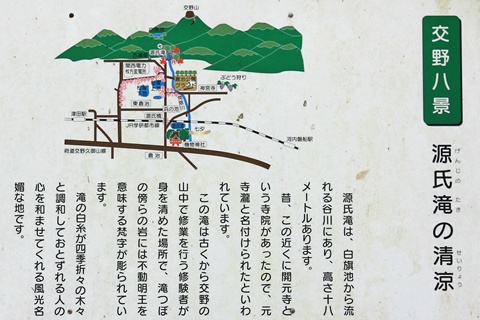 交野八景
源氏滝の清涼
げんじの たき
せいりょう
源氏滝は、白旗池から流
れる谷川にあり、高さ十八
メートルあります。
昔、この近くに開元寺と
いう寺院があったので、元
寺瀧と名付けられたといわ
れています。
この滝は古くから交野の
山中で修業を行う修験者が
身を清めた場所で、滝つぼ
の傍らの岩には不動明王を
意味する梵字が彫られてい
ます。
滝の白糸が四季折々の木々
と調和しておとずれる人の
心を和ませてくれる風光名
媚な地です。
交野山
源氏滝
関西電力
枚方変電所
ぶどう狩り
神宮寺
東倉治
津田駅
源氏橋
JR学研都市線
七夕
機物神社
河内磐船駅
倉治
府道交野久御山線